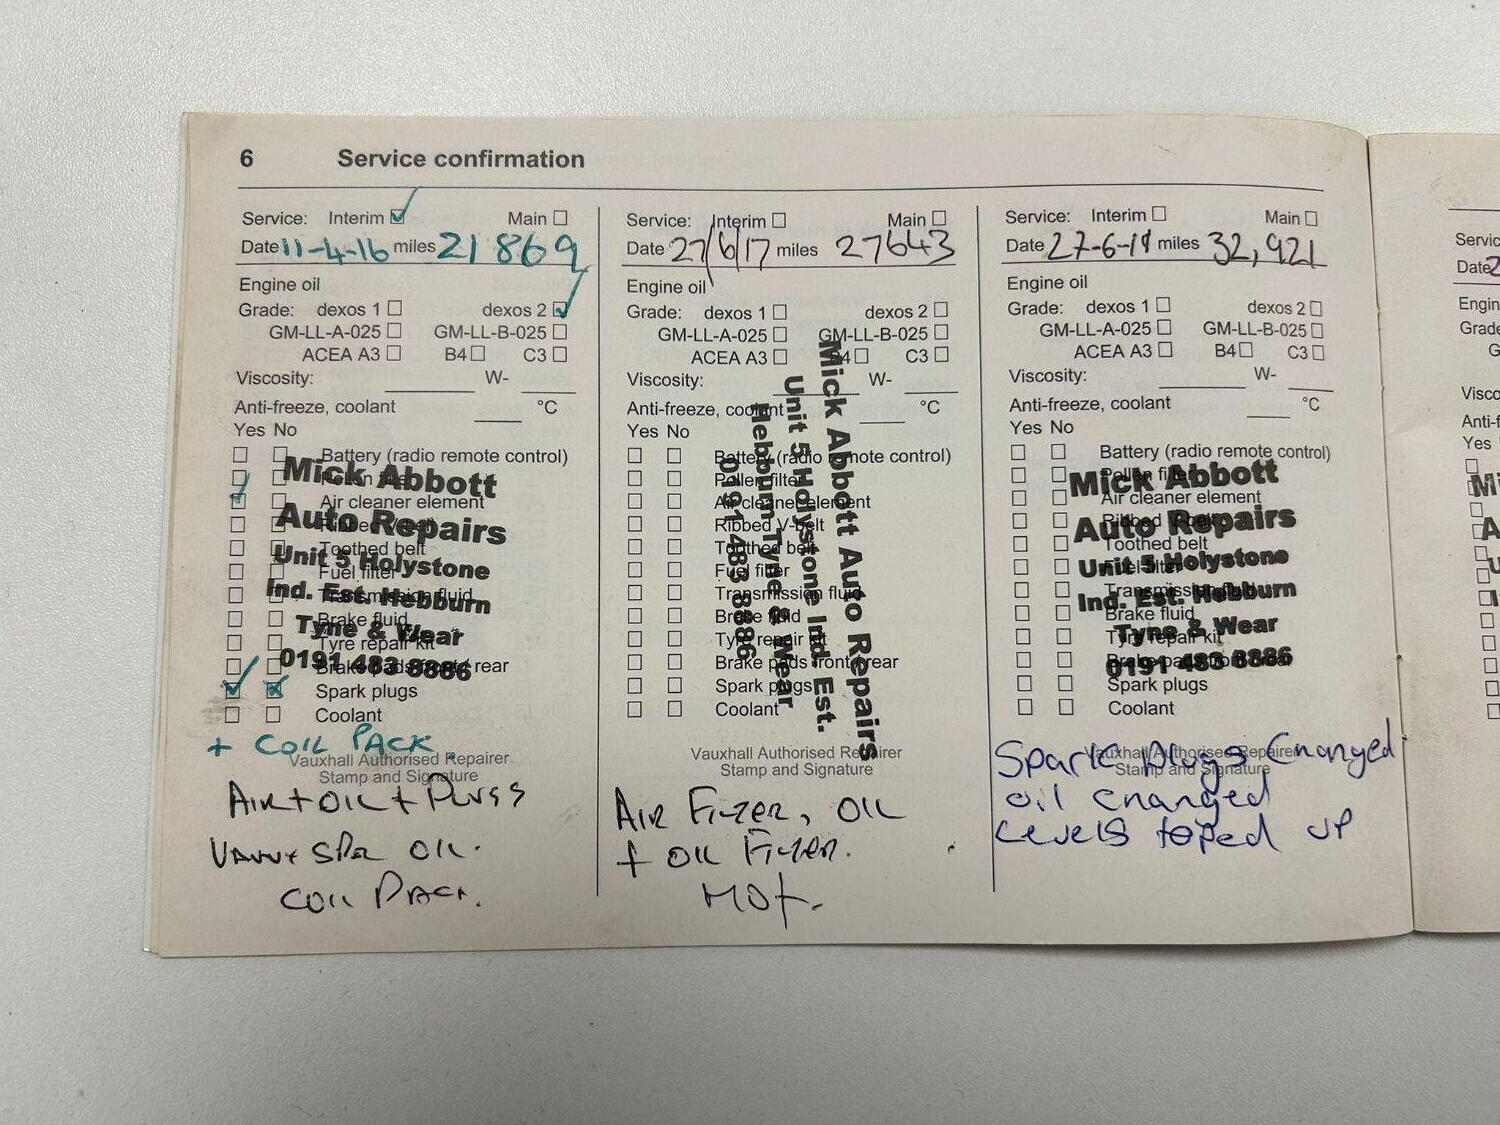 6 Service confirmation
Service: Interim Main
Date 11-4-16 miles 21869
Engine oil
Grade: dexos 1 dexos 2
GM-LL-A-025 GM-LL-B-025
ACEA A3 B4 C3
Viscosity: W-
Anti-freeze, coolant °C
Yes No
Battery (radio remote control)
Air cleaner element
Toothed belt
Fuel filter
Transmission fluid
Brake fluid
Tyre repair kit
Brake pads front/rear
Spark plugs
Coolant
Mick Abbott
Auto Repairs
Unit 5 Holystone
Ind. Est. Hebburn
Tyne & Wear
0191 483 8886
+ COIL PACK
Vauxhall Authorised Repairer
Stamp and Signature
AIR + OIL + PLUGS
OIL.
COIL PACK.
Service: Interim Main
Date 27/6/17 miles 27643
Engine oil
Grade: dexos 1 dexos 2
GM-LL-A-025 GM-LL-B-025
ACEA A3 B4 C3
Viscosity: W-
Anti-freeze, coolant °C
Yes No
Battery (radio remote control)
Pollen filter
Air cleaner element
Ribbed V-belt
Toothed belt
Fuel filter
Transmission fluid
Brake fluid
Tyre repair kit
Brake pads front/rear
Spark plugs
Coolant
Mick Abbott Auto Repairs
Unit 5 Holystone Ind. Est.
Hebburn Tyne & Wear
0191 483 8886
Vauxhall Authorised Repairer
Stamp and Signature
AIR FILTER, OIL
+ OIL FILTER.
MOT.
Service: Interim Main
Date miles 32,921
Engine oil
Grade: dexos 1 dexos 2
GM-LL-A-025 GM-LL-B-025
ACEA A3 B4 C3
Viscosity: W-
Anti-freeze, coolant °C
Yes No
Battery (radio remote control)
Pollen filter
Air cleaner element
Ribbed V-belt
Toothed belt
Fuel filter
Transmission fluid
Brake fluid
Tyre repair kit
Brake pads front/rear
Spark plugs
Coolant
Mick Abbott
Auto Repairs
Unit 5 Holystone
Ind. Est. Hebburn
Tyne & Wear
0191 483 8886
Vauxhall Authorised Repairer
Stamp and Signature
Spark plugs changed
oil changed
Levels toped up